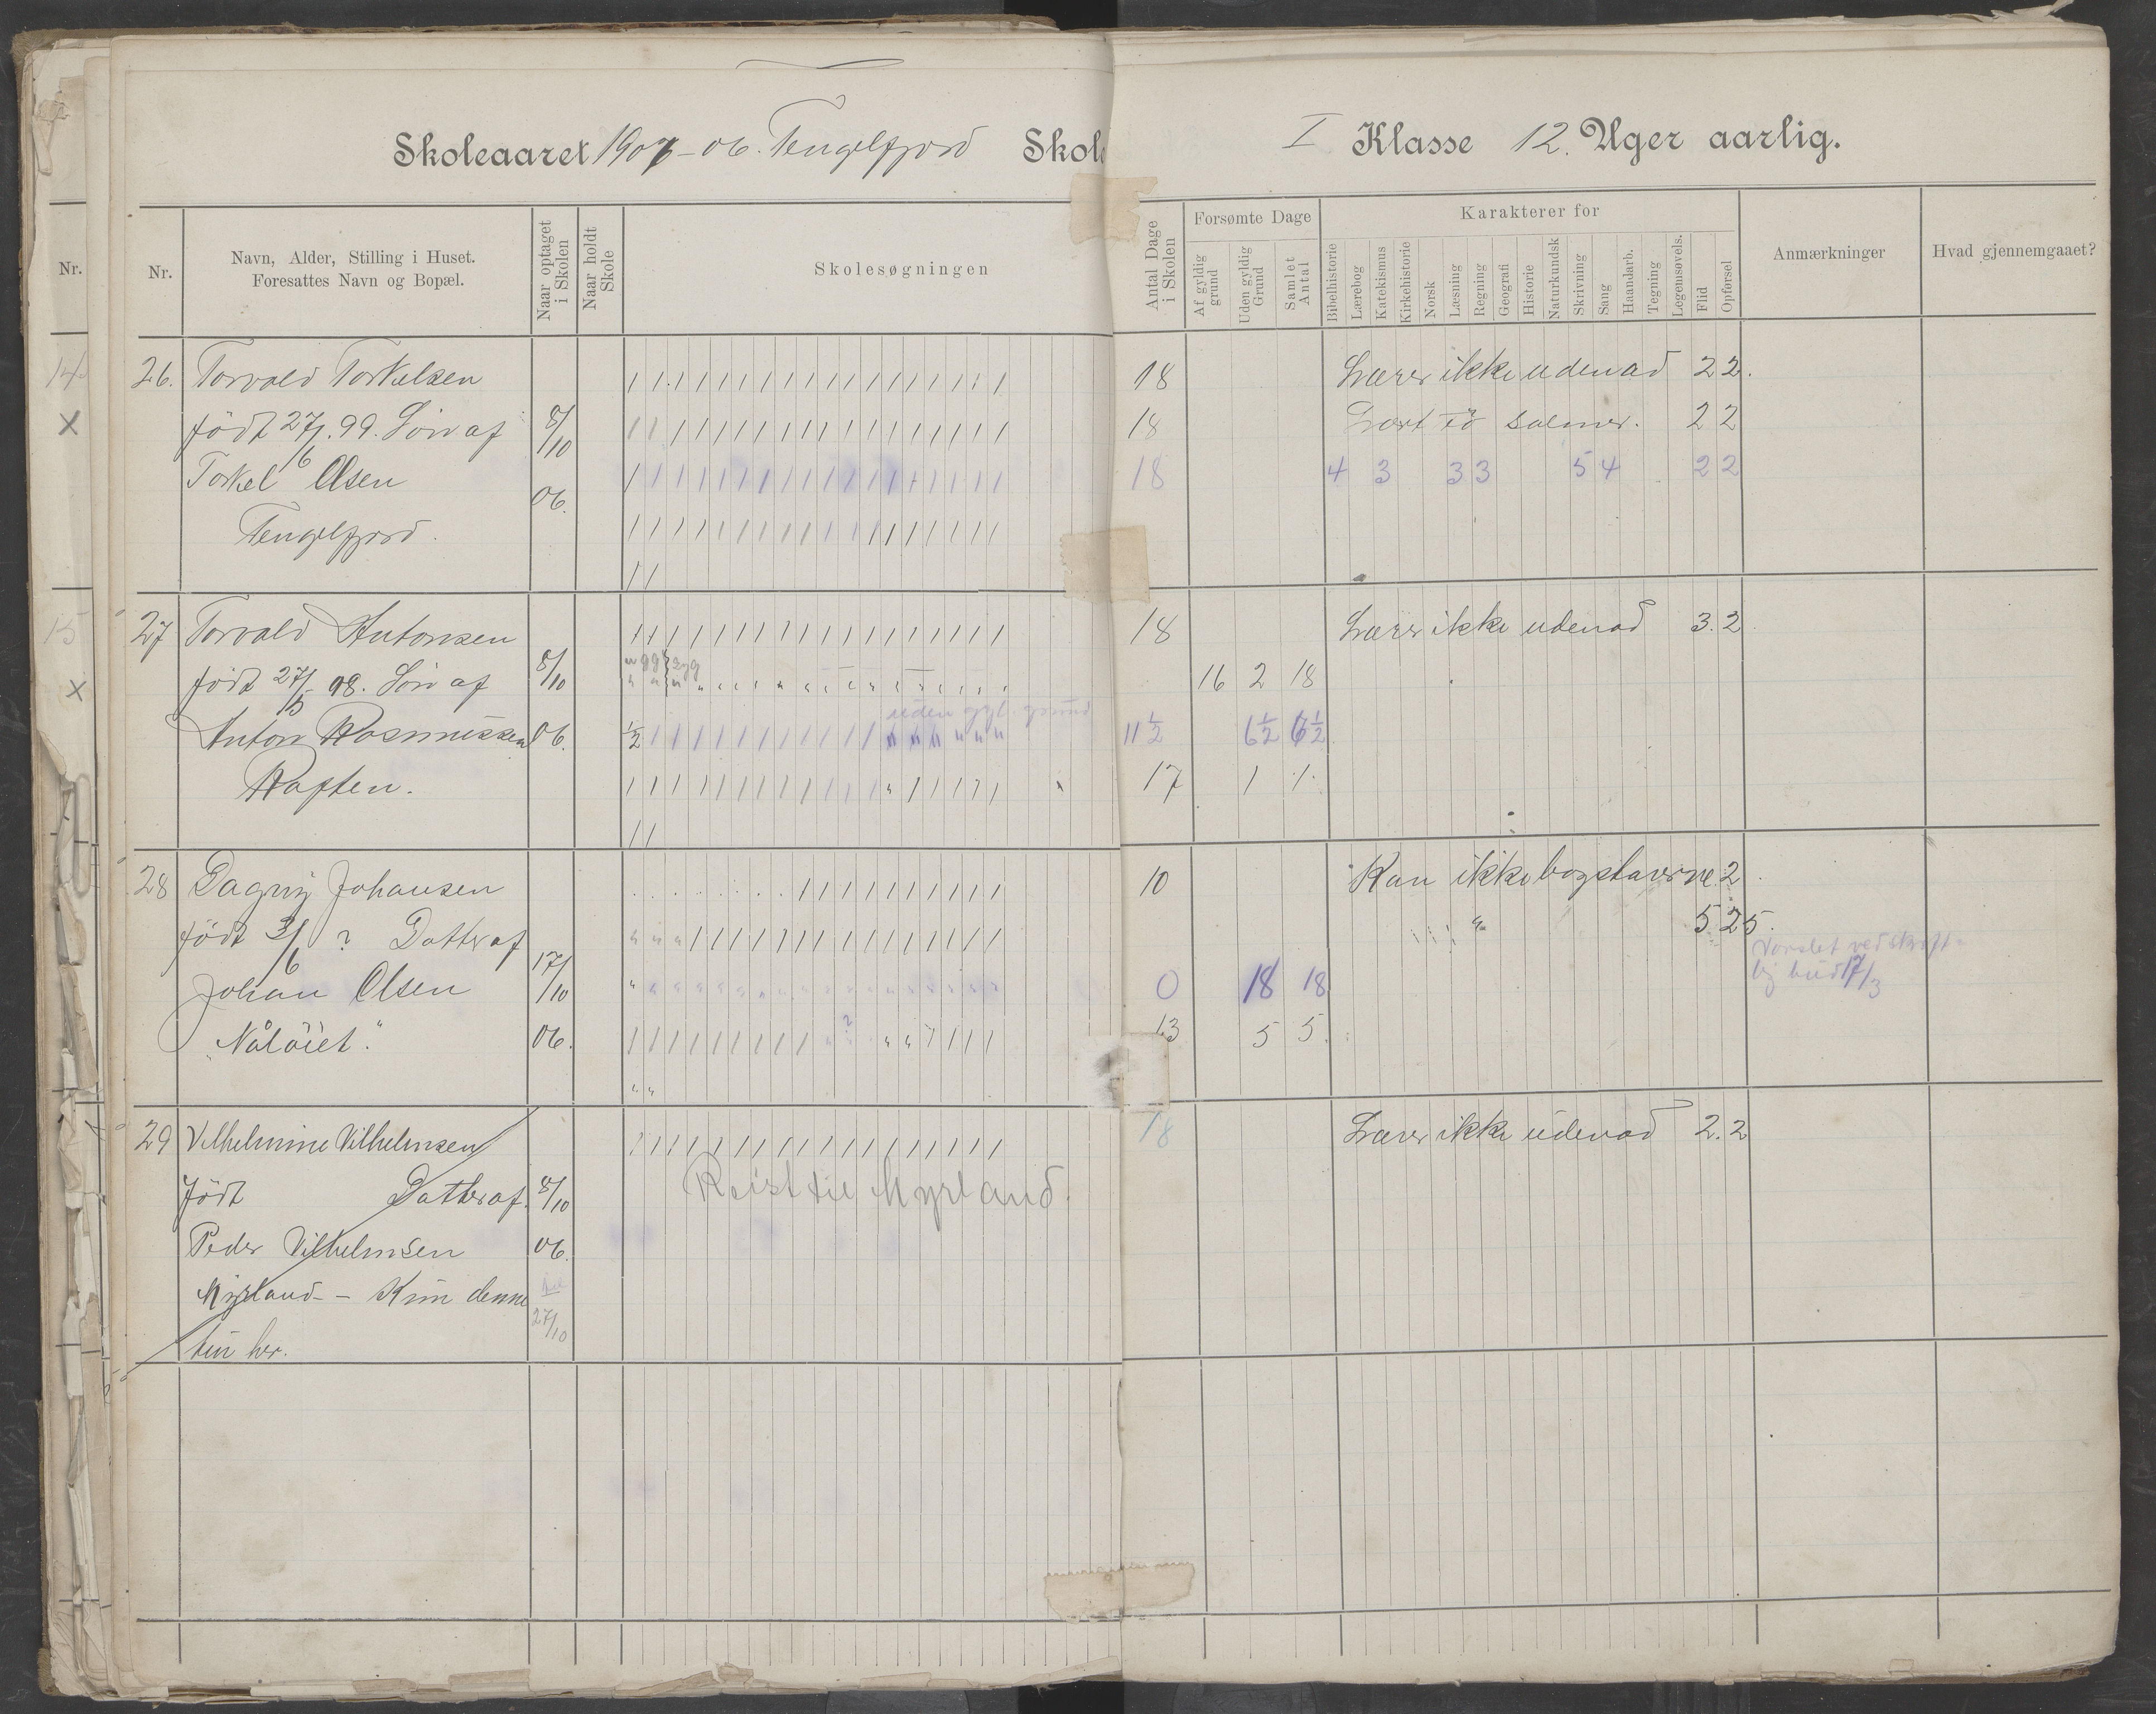 Skoleaaret 1907-06. Tengelfjord Skole
I Klasse 12. Uger aarlig.
Nr.
Nr.
Navn, Alder, Stilling i Huset.
Foresattes Navn og Bopæl.
Naar optaget
i Skolen
Naar holdt
Skole
Skolesøgningen
Antal Dage
i Skolen
Forsømte Dage
Af gyldig
grund
Uden gyldig
Grund
Samlet
Antal
Karakterer for
Bibelhistorie
Lærebog
Katekismus
Kirkehistorie
Norsk
Læsning
Regning
Geografi
Historie
Naturkundsk
Skrivning
Sang
Haandarb.
Tegning
Legemsøvels.
Flid
Opførsel
Anmærkninger
Hvad gjennemgaaet?
14
26. Torvald Torkelsen 18 Lærer ikke udenad 2 2.
X
født 27/6. 99. Søn af 8/10 18 Lært to salmer. 2 2
Torkel Olsen 06. 18 4 3 3 3 5 4 2 2
Tengelfjord.
15
27 Torvald Antonsen 18 Lærer ikke udenad 3. 2
X
født 27/5 98. Søn af 8/10 16 2 18
uden gyl. grund
Anton Rasmussen 06. 1/2 11 1/2 6 1/2 6 1/2
Raften. 17 1 1.
28 Dagny Johansen 10 Kan ikke bogstaverne. 2
født 3/6 ? Datter af 17/10 " 5 2 5.
Varslet ved skrift-
lig bud 17/3
Johan Olsen 0 18 18
"Nåløiet". 06. 13 5 5.
29 Vilhelmine Vilhelmsen 18 Lærer ikke udenad 2. 2
Født Datter af 8/10 Reist til Myrland.
Peder Vilhelmsen 06.
Myrland - Kun denne
27/10
tur her.